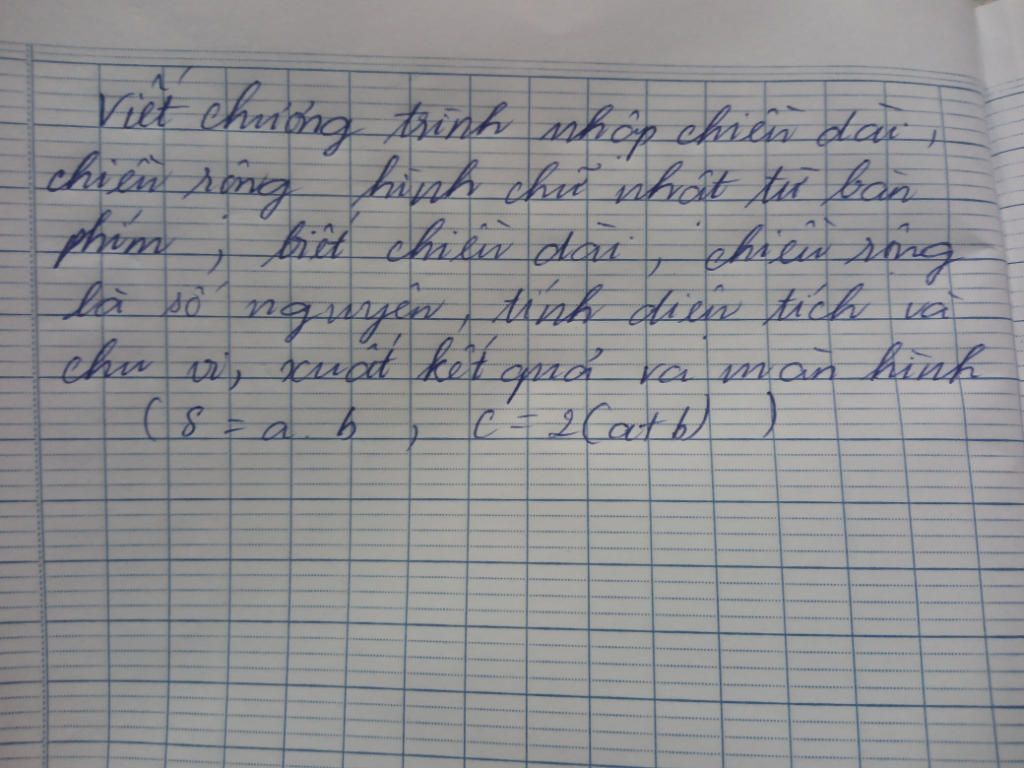 Viết chương trình nhập chiều dài,
chiều rộng hình chữ nhật từ bàn
phím, biết chiều dài, chiều rộng
là số nguyên, tính diện tích và
chu vi, xuất kết quả ra màn hình
( S = a . b , C = 2(a+b) )